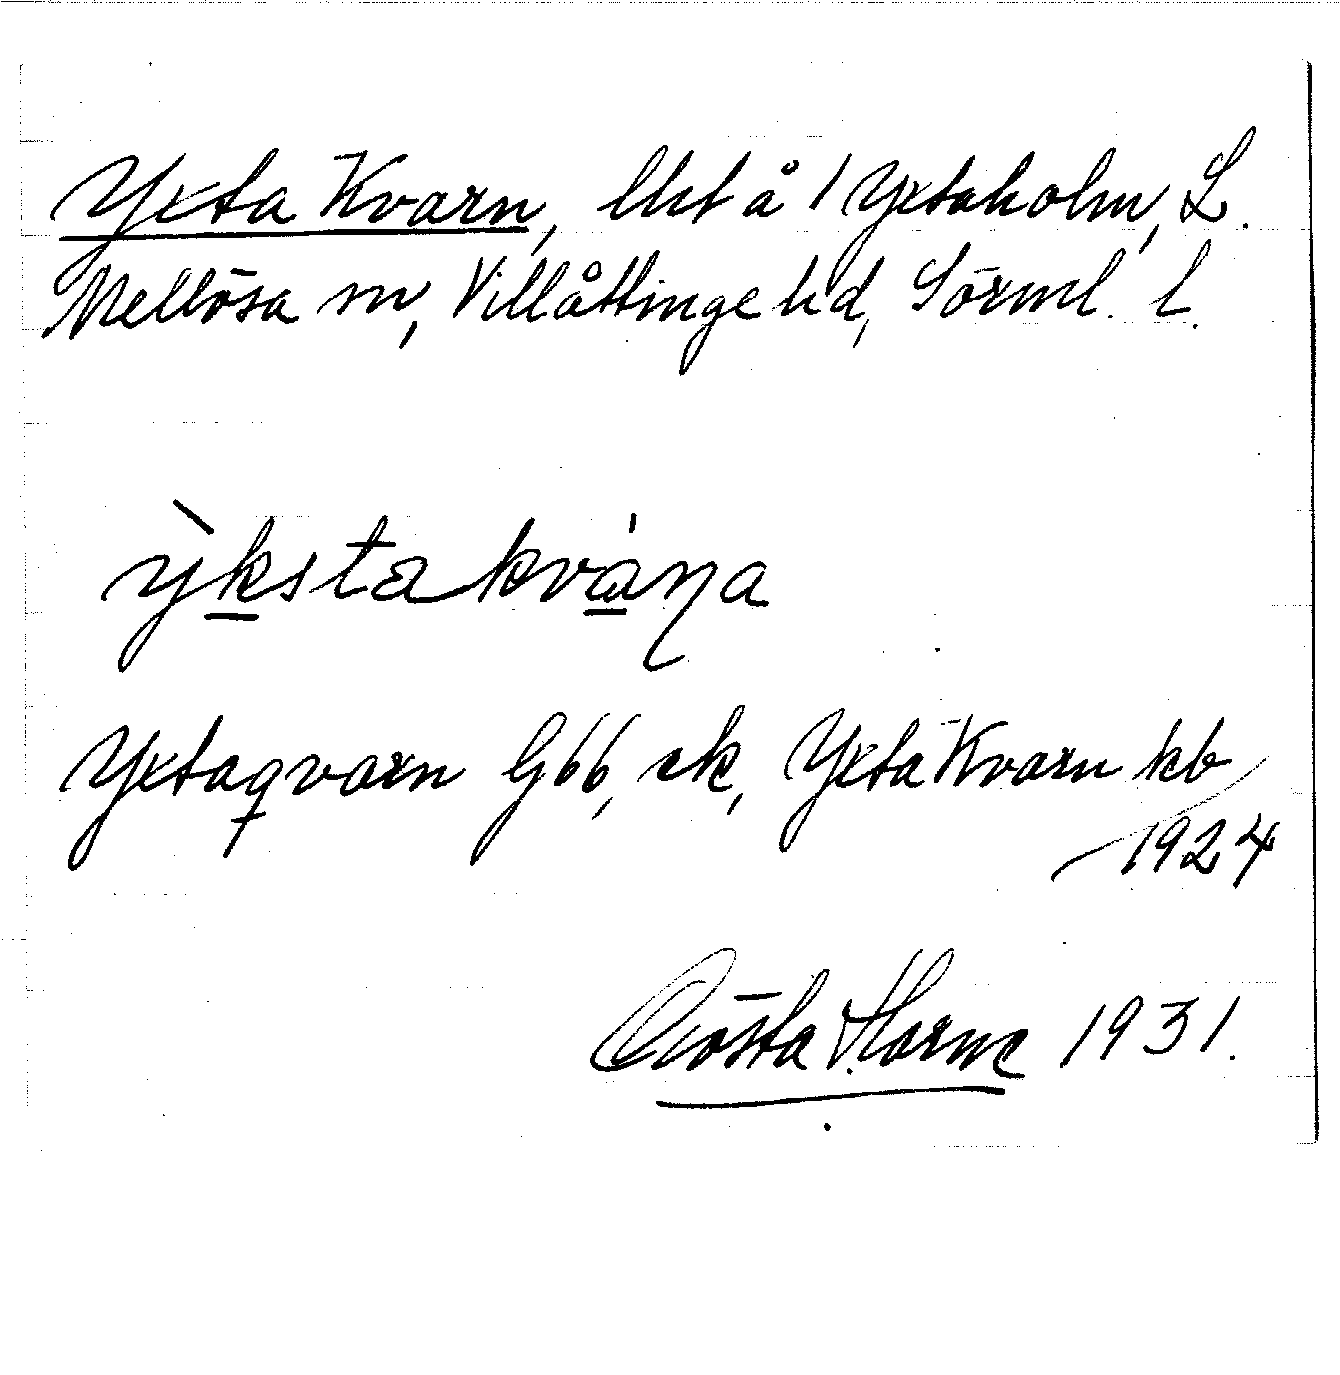 Yxta Kvarn, lht å 1 Yxtaholm, L.
Mellösa sn, Villåttinge hd, Sörml. l.
ỳksta kvàṇa
Yxtaqvarn G66, ek, Yxta Kvarn kb
1924
Gösta Horne 1931.